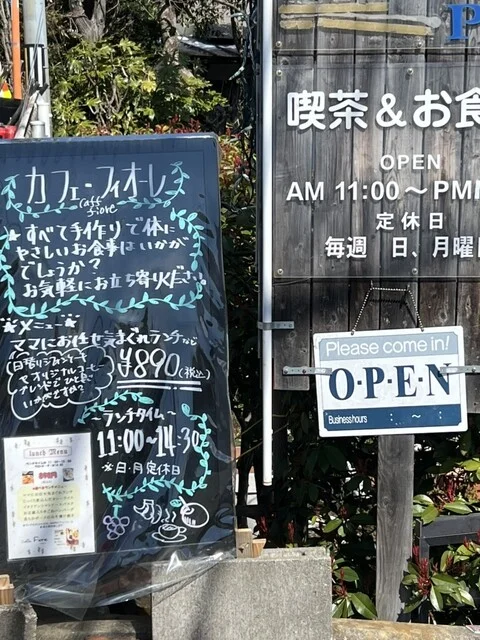 カフェ・フィオーレ
caffe fiore
★すべて手作りで体に
やさしいお食事はいかが
でしょうか?
お気軽にお立ち寄りください
★メニュー★
ママにお任せ気まぐれランチなど
¥890(税込)
日替りシフォンケーキ
オリジナルコーヒー
ブレンドでひと息
いかがですか?
~ランチタイム~
11:00~14:30
※日・月定休日
lunch Menu
P
喫茶&お食
OPEN
AM 11:00~PM
定休日
毎週 日、月曜日
Please come in!
O・P・E・N
Business hours : ~ :